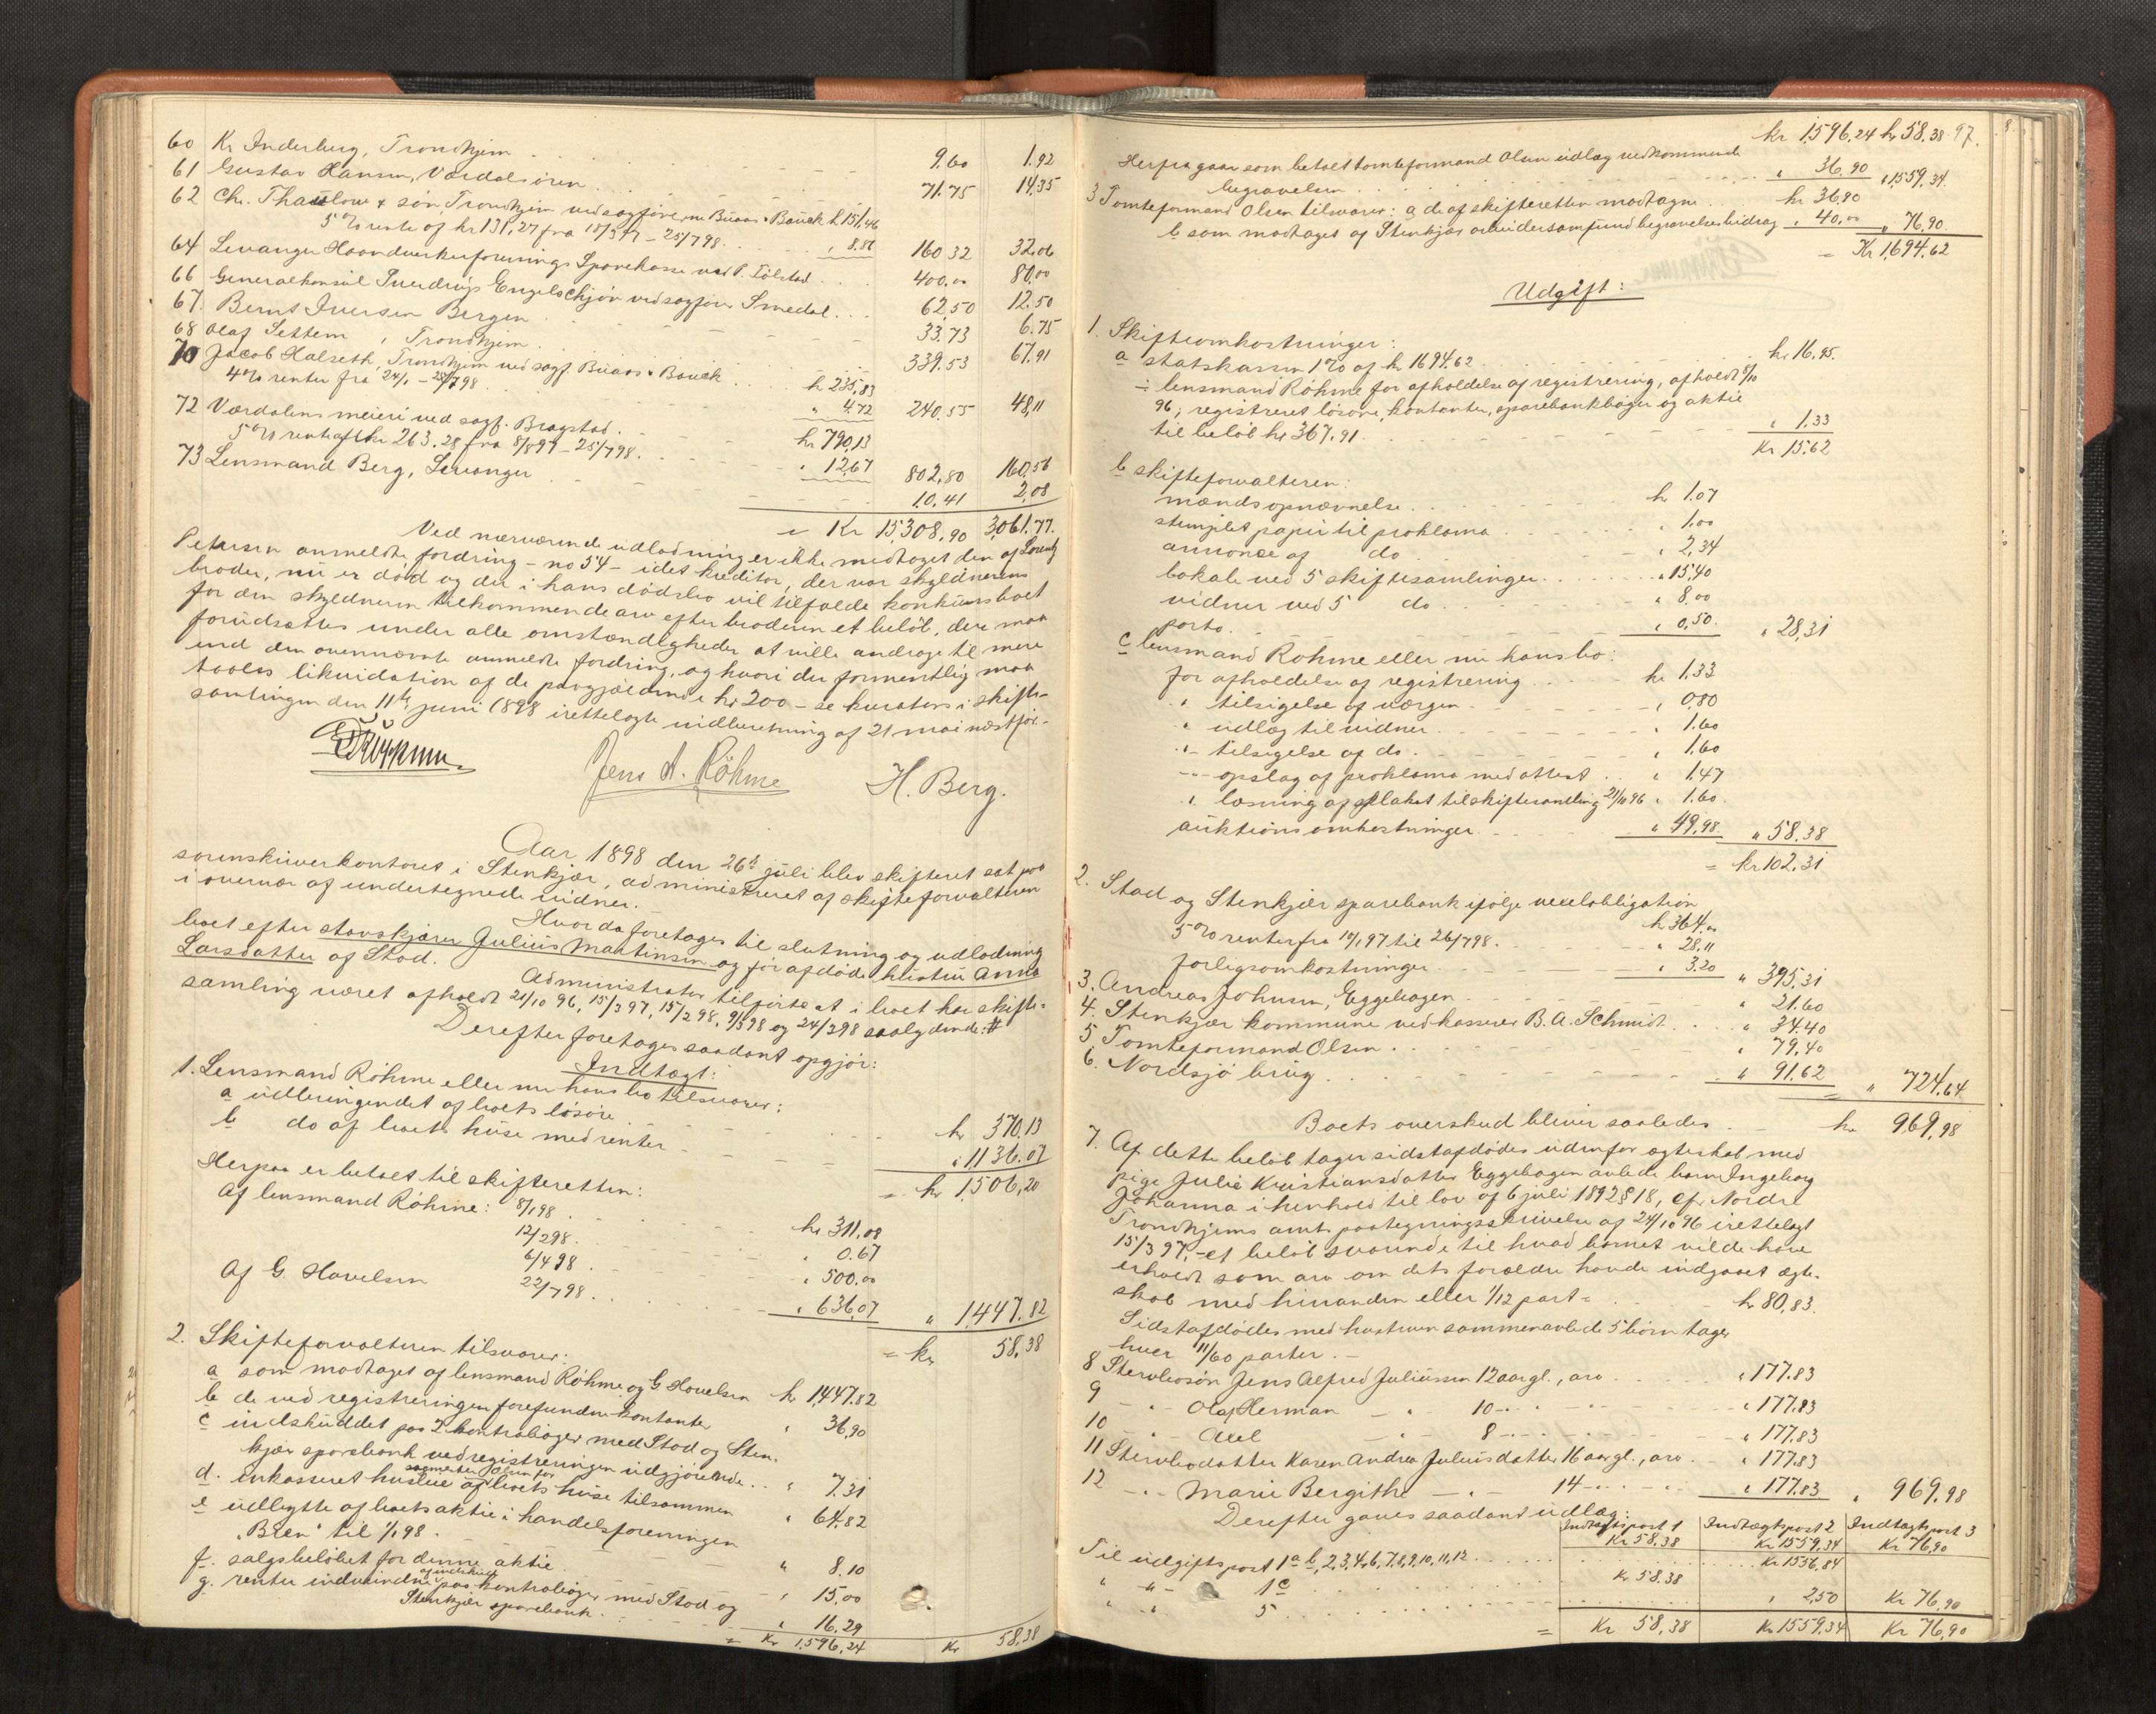 60 Kr Inderberg, Trondhjem . . . 9,60 1.92
61 Gustav Hansen, Værdalsøren . . . 71.75 14.35
62 Chr. Thaulow & søn, Trondhjem ved sagførerne Buaas & Bauck k 151,46
5 % rente af kr 131,27 fra 18/3 97 – 25/7 98 . . " 8.86 160,32 32,06
64 Levanger Haandverkerforenings Sparekasse ved P. Tølstad . . . 400,00 80,00
66 Generalkonsul Sverdrups Engelschjøn ved sagfører Smedal . . . 62,50 12,50
67. Bernt Iversen Bergen . . . 33.73 6.75
68 Olaf Settem, Trondhjem . . . 339.53 67.91
70 Jacob Halseth, Trondhjem ved sagf. Buaas & Bauck . . kr 235,83
4 % renter fra 24/1 – 25/7 98 . . . " 4.72 240,55 48,11
72 Værdalens meieri ved sagf. Bragstad . . . kr 790,13
5 % rente af kr 263.28 fra 8/8 97 – 25/7 98 . . . " 12,67 802,80 160,56
73 Lensmand Berg, Levanger . . . 10.41 2,08
= Kr 15,308,90 3,061.77.
Ved nærværende udlodning er ikke medtaget den af Lorentz
Petersen anmeldte fordring – no 54 – idet kreditor, der var skyldnerens
broder, nu er død og der i hans dødsbo vil tilfalde konkursboet
for den skyldneren tilkommende arv efter broderen et beløb, der maa
forudsættes under alle omstændigheder at ville andrage til mere
end den ovennævnte anmeldte fordring, og hvori der formentlig maa
taales likvidation af de paagjældende kr 200 – se kurators i skifte-
samlingen den 11te juni 1898 irettelagte indberetning af 21 mai næstfør.
Jens A. Röhme H. Berg.
Aar 1898 den 26de juli blev skifteret sat paa
sorenskriverkontoret i Stenkjær, administreret af skifteforvalteren
i overvær af undertegnede vidner.
Hvor da foretages til slutning og udlodning
boet efter stavskjærer Julius Martinsen og før afdøde hustru Anna
Larsdatter af Stod.
Administrator tilførte at i boet har skifte-
samling været afholdt 21/10 96, 15/3 97, 15/2 98, 9/3 98 og 24/2 98 saalydende: #
Derefter foretages saadant opgjør:
Indtægt:
1. Lensmand Röhme eller nu hans bo tilsvarer:
a udbringendet af boets løsøre . . . kr 370,13
b do af boets huse med renter . . . " 1136.07
= kr 1,506,20
Herpaa er betalt til skifteretten:
Af lensmand Röhme: 8/1 98 . . . kr 311,08
12/2 98 . . . " 0.67
6/4 98 . . . " 500.00
Af G. Havelsen 22/7 98 . . . " 636,07 " 1,447,82
= kr 58,38
2. Skifteforvalteren tilsvarer:
a som modtaget af lensmand Röhme og G Havelsen kr 1,447.82
b de ved registreringen forefundne kontanter " 36,90
c indskuddet paa 2 kontrabøger med Stod og Sten-
kjær sparebank ved registreringen udgjørende . . " 7.31
sagmester Olsen for
d. inkasseret husleie af boets huse tilsammen " 64,82
e udbytte af boets aktie i handelsforeningen
"Bien" til 1/1 98 . . . " 8.10
f. salgsbeløbet for denne aktie . . . " 15,00
af indskud
g. renter indvundne paa kontrabøger med Stod og
Stenkjær sparebank . . . " 16.29
= Kr 1,596,24 Kr 58.38
kr 1,596,24 kr 58,38 97.
Herfra gaar som betalt tomteformand Olsen udlæg vedkommende
begravelsen . . . " 36,90 " 1,559,34
3 Tomteformand Olsen tilsvarer: a de af skifteretten modtagne . . kr 36,90
b som modtaget af Stenkjær arbeidersamfund begravelsesbidrag " 40,00 " 76,90
= Kr 1,694,62
Udgift:
1. Skifteomkostninger:
a statskassen 1 % af kr 1694.62 . . . kr 16,95.
÷ lensmand Röhme for afholdelse af registrering, afholdt 8/10
96, registreret løsøre, kontanter, sparebankbøger og aktie
til beløb kr 367,91 . . . " 1,33
Kr 15.62
b skifteforvalteren:
mændsopnævnelse . . . kr 1.07
stemplet papir til proklama . . . " 1.00
annonce af do . . . " 2,34
lokale ved 5 skiftesamlinger . . . " 15,40
vidner ved 5 do . . . " 8.00
porto . . . " 0,50. " 28,31
c lensmand Röhme eller nu hans bo:
for afholdelse af registrering . . . kr 1.33
" tilsigelse af værgen . . . " 0,80
" udlæg til vidner . . . " 1.60
" tilsigelse af do . . . " 1,60
" opslag af proklama med attest . . " 1,47
" læsning af plakat til skiftesamling 21/10 96 " 1.60.
auktionsomkostninger . . . " 49,98 " 58,38
= kr 102,31
2. Stod og Stenkjær sparebank ifølge vexelobligation
kr 364,00
5 % renter fra 10/1 97 til 26/7 98 . . . " 28,11
forligsomkostninger . . . " 3.20 " 395,31
3. Andreas Johnsen, Eggehagen . . . " 21.60
4. Stenkjær kommune ved kasserer B. A. Schmidt . . . " 34.40
5 Tomteformand Olsen . . . " 79,40
6. Nordsjø brug . . . " 91,62 " 724,64
Boets overskud bliver saaledes . . . kr 969,98
7. Af dette beløb tager sidstafdødes udenfor ægteskab med
pige Julie Kristiansdatter Eggehagen avlede barn Ingeborg
Johanna i henhold til lov af 6 juli 1892 § 18, cfr. Nordre
Trondhjems amts paategningsskrivelse af 24/10 96 irettelagt
15/3 97, – et beløb svarende til hvad barnet vilde have
erholdt som arv om dets forældre havde indgaaet ægte-
skab med hinanden eller 1/12 part = . . kr 80,83.
Sidstafdødes med hustruen sammenavlede 5 børn tager
hver 11/60 parter. –
8 Stervbosøn Jens Alfred Juliussen 12 aar gl., arv . . . " 177.83
9 – " – Olaf Herman – " – 10 – " . . . " 177,83
10 – " – Axel – " – 8 – " . . . " 177,83
11 Stervbodatter Karen Andrea Juliusdatter 16 aar gl., arv . . " 177,83
12 – " – Marie Bergithe – " – 14 – " . . . " 177.83 " 969,98
Derefter gaves saadant udlæg:
Indtægtspost 1 Indtægtspost 2 Indtægtspost 3
Kr 58,38 Kr 1559,34 Kr 76,90
Til udgiftspost 1 a b, 2, 3, 4, 6, 7, 8, 9, 10, 11, 12 . . . Kr 1556,84
" " – 1 c . . . Kr 58.38
" " 5 . . . " 2,50 Kr 76,90
= Kr 58,38 Kr 1559,34 Kr 76,90